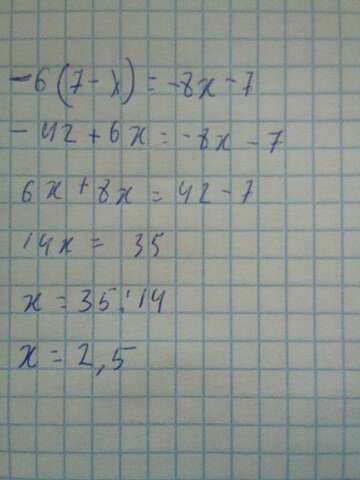 -6(7-x) = -8x-7
-42+6x = -8x-7
6x+8x = 42-7
14x = 35
x = 35:14
x = 2,5